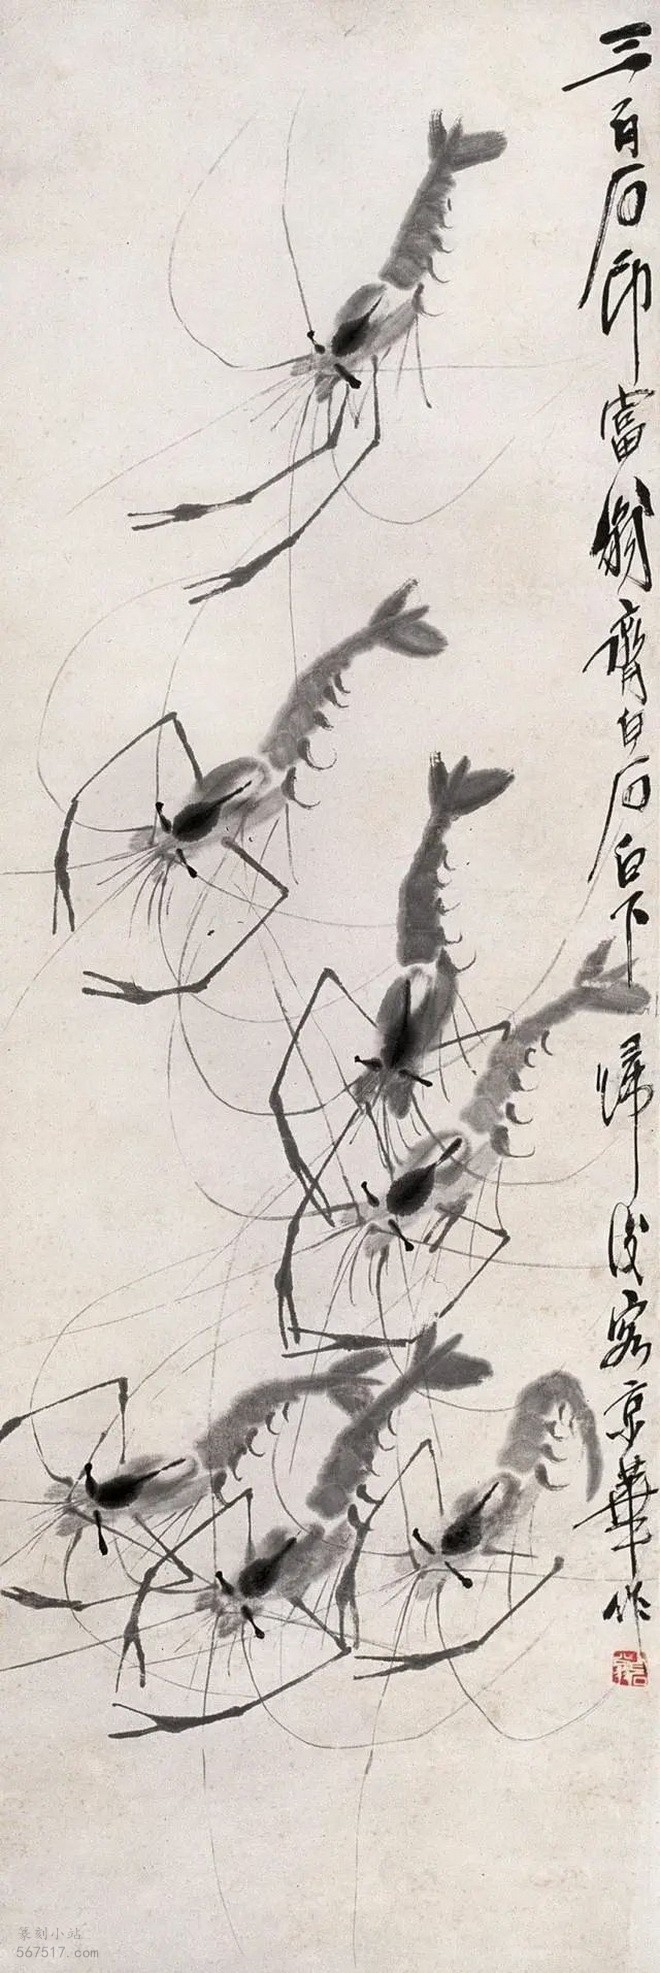 三百石印富翁齊白石白下歸後客京華作
篆刻小站
567517.com